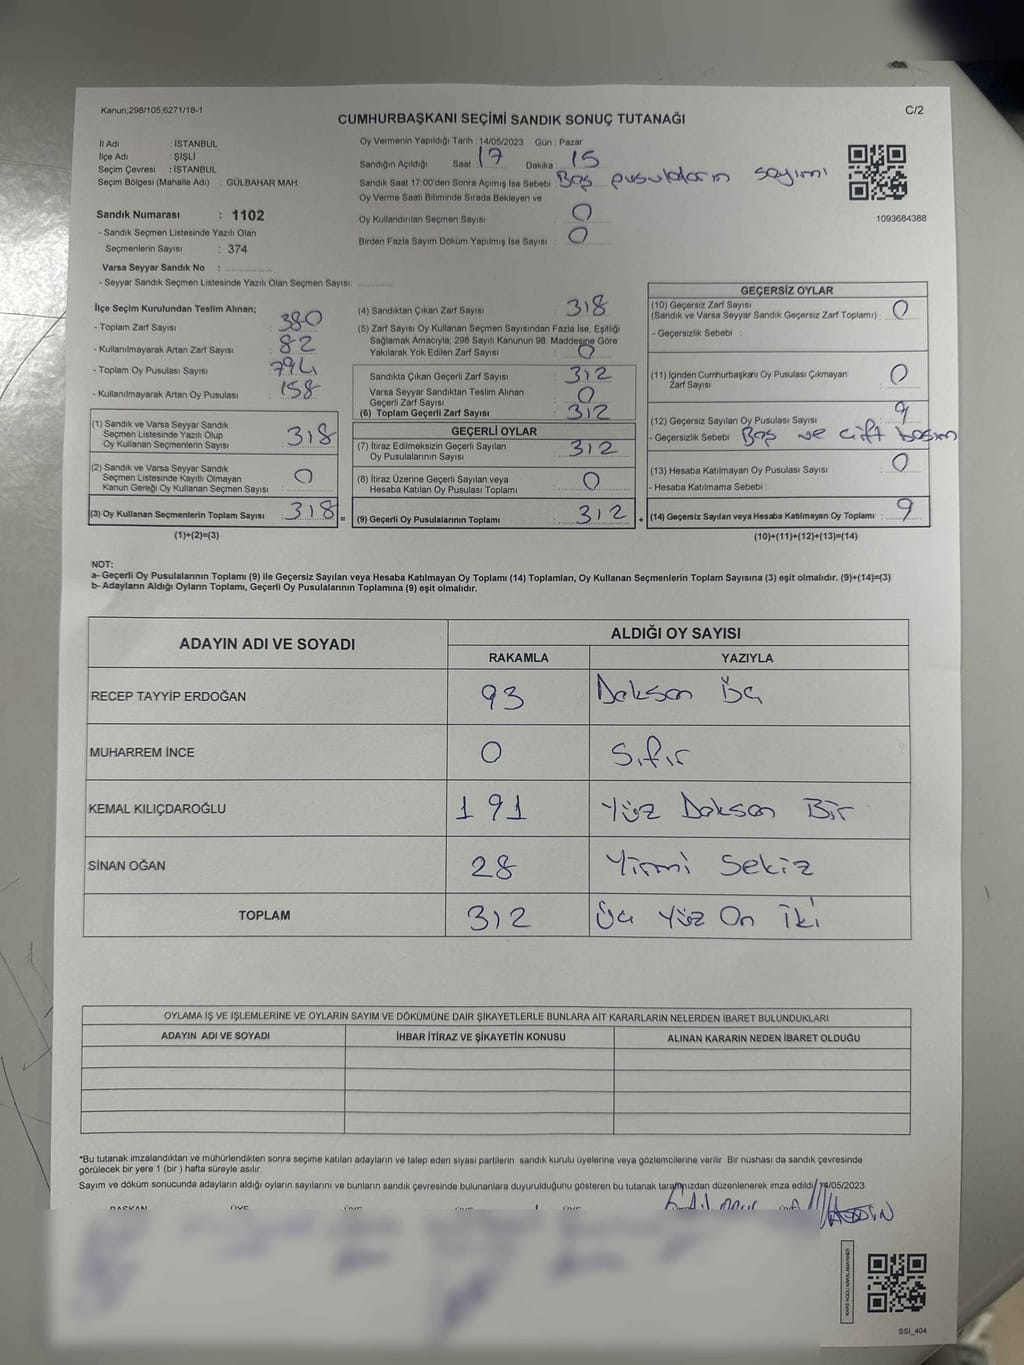 Kanun;298/105,6271/18-1
C/2
CUMHURBAŞKANI SEÇİMİ SANDIK SONUÇ TUTANAĞI
İl Adı : İSTANBUL
İlçe Adı : ŞİŞLİ
Seçim Çevresi : İSTANBUL
Seçim Bölgesi (Mahalle Adı) : GÜLBAHAR MAH.
Oy Vermenin Yapıldığı Tarih : 14/05/2023 Gün : Pazar
Sandığın Açıldığı Saat 17 Dakika : 15
Sandık Saat 17:00'den Sonra Açımış İse Sebebi : Boş pusulaların sayımı
Oy Verme Saati Bitiminde Sırada Bekleyen ve
Oy Kullandırılan Seçmen Sayısı : 0
Birden Fazla Sayım Döküm Yapılmış İse Sayısı : 0
1093684388
Sandık Numarası : 1102
- Sandık Seçmen Listesinde Yazılı Olan
Seçmenlerin Sayısı : 374
Varsa Seyyar Sandık No :
- Seyyar Sandık Seçmen Listesinde Yazılı Olan Seçmen Sayısı:
İlçe Seçim Kurulundan Teslim Alınan;
- Toplam Zarf Sayısı : 380
- Kullanılmayarak Artan Zarf Sayısı : 82
- Toplam Oy Pusulası Sayısı : 794
- Kullanılmayarak Artan Oy Pusulası : 158
(1) Sandık ve Varsa Seyyar Sandık
Seçmen Listesinde Yazılı Olup
Oy Kullanan Seçmenlerin Sayısı : 318
(2) Sandık ve Varsa Seyyar Sandık
Seçmen Listesinde Kayıtlı Olmayan
Kanun Gereği Oy Kullanan Seçmen Sayısı : 0
(3) Oy Kullanan Seçmenlerin Toplam Sayısı : 318 =
(1)+(2)=(3)
(4) Sandıktan Çıkan Zarf Sayısı : 318
(5) Zarf Sayısı Oy Kullanan Seçmen Sayısından Fazla İse, Eşitliği
Sağlamak Amacıyla; 298 Sayılı Kanunun 98. Maddesine Göre
Yakılarak Yok Edilen Zarf Sayısı : 0
Sandıkta Çıkan Geçerli Zarf Sayısı : 312
Varsa Seyyar Sandıktan Teslim Alınan
Geçerli Zarf Sayısı : 0
(6) Toplam Geçerli Zarf Sayısı : 312
GEÇERLİ OYLAR
(7) İtiraz Edilmeksizin Geçerli Sayılan
Oy Pusulalarının Sayısı : 312
(8) İtiraz Üzerine Geçerli Sayılan veya
Hesaba Katılan Oy Pusulası Toplamı : 0
(9) Geçerli Oy Pusulalarının Toplamı : 312 +
GEÇERSİZ OYLAR
(10) Geçersiz Zarf Sayısı
(Sandık ve Varsa Seyyar Sandık Geçersiz Zarf Toplamı) : 0
- Geçersizlik Sebebi :
(11) İçinden Cumhurbaşkanı Oy Pusulası Çıkmayan
Zarf Sayısı : 0
(12) Geçersiz Sayılan Oy Pusulası Sayısı : 9
- Geçersizlik Sebebi : Boş ve çift basım
(13) Hesaba Katılmayan Oy Pusulası Sayısı : 0
- Hesaba Katılmama Sebebi :
(14) Geçersiz Sayılan veya Hesaba Katılmayan Oy Toplamı : 9
(10)+(11)+(12)+(13)=(14)
NOT:
a- Geçerli Oy Pusulalarının Toplamı (9) ile Geçersiz Sayılan veya Hesaba Katılmayan Oy Toplamı (14) Toplamları, Oy Kullanan Seçmenlerin Toplam Sayısına (3) eşit olmalıdır. (9)+(14)=(3)
b- Adayların Aldığı Oyların Toplamı, Geçerli Oy Pusulalarının Toplamına (9) eşit olmalıdır.
ADAYIN ADI VE SOYADI ALDIĞI OY SAYISI
RAKAMLA YAZIYLA
RECEP TAYYİP ERDOĞAN 93 Doksan Üç
MUHARREM İNCE 0 Sıfır
KEMAL KILIÇDAROĞLU 191 Yüz Doksan Bir
SİNAN OĞAN 28 Yirmi Sekiz
TOPLAM 312 Üç Yüz On İki
OYLAMA İŞ VE İŞLEMLERİNE VE OYLARIN SAYIM VE DÖKÜMÜNE DAİR ŞİKAYETLERLE BUNLARA AİT KARARLARIN NELERDEN İBARET BULUNDUKLARI
ADAYIN ADI VE SOYADI İHBAR İTİRAZ VE ŞİKAYETİN KONUSU ALINAN KARARIN NEDEN İBARET OLDUĞU
*Bu tutanak imzalandıktan ve mühürlendikten sonra seçime katılan adayların ve talep eden siyasi partilerin sandık kurulu üyelerine veya gözlemcilerine verilir. Bir nüshası da sandık çevresinde
görülecek bir yere 1 (bir ) hafta süreyle asılır.
Sayım ve döküm sonucunda adayların aldığı oyların sayılarını ve bunların sandık çevresinde bulunanlara duyurulduğunu gösteren bu tutanak tarafımızdan düzenlenerek imza edildi. 14/05/2023
BAŞKAN ÜYE ÜYE ÜYE
SSI_404